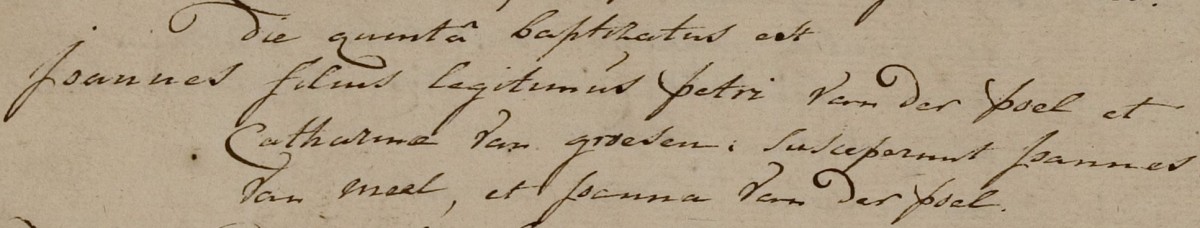 Die quintâ baptizatus est
Joannes filius legitimus petri van der poel et
Catharinæ van groesen: susceperunt Joannes
van meel, et Joanna van der poel.